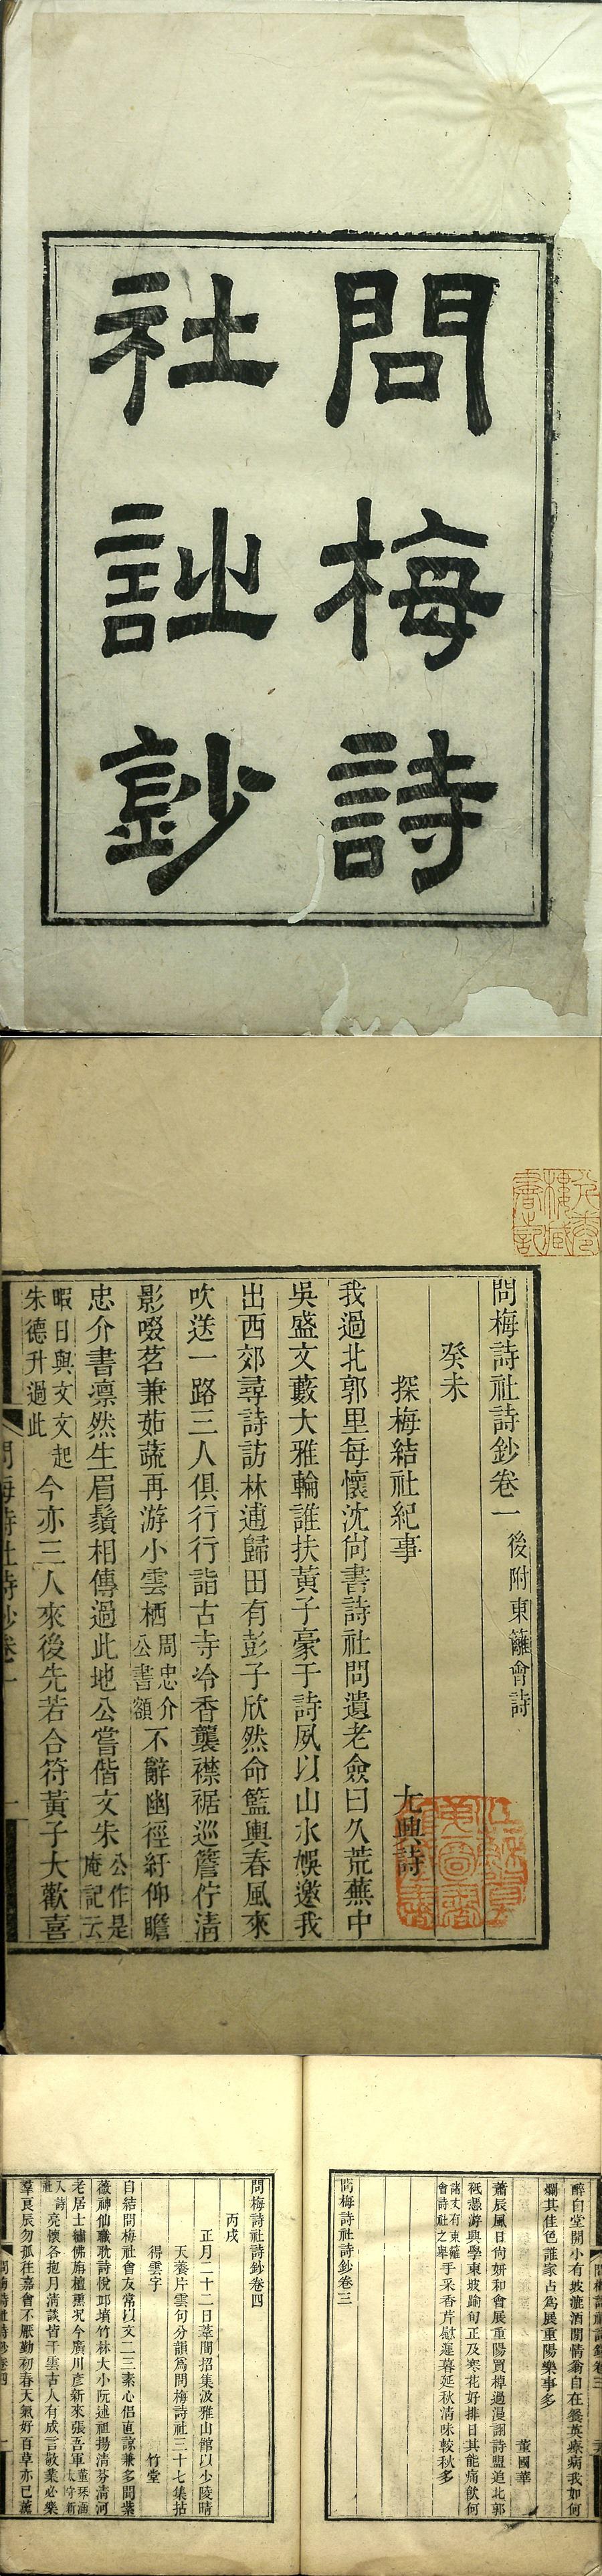 問梅詩
社詩鈔
問梅詩社詩鈔卷一 後附東籬會詩
癸未
探梅結社紀事 尤興詩
我過北郭里每懷沈尙書詩社問遺老僉曰久荒蕪中
吳盛文藪大雅輪誰扶黃子豪于詩夙以山水娛邀我
出西郊尋詩訪林逋歸田有彭子欣然命籃輿春風來
吹送一路三人俱行行詣古寺冷香襲襟裾巡簷佇清
影啜茗兼茹蔬再游小雲栖周忠介公書額不辭幽徑紆仰瞻
忠介書凛然生眉鬚相傳過此地公嘗偕文朱公作是庵記云
暇日與文文起朱德升過此今亦三人來後先若合符黃子大歡喜
醉白堂開小有坡漉酒閒情翁自在餐英療病我如何
爛其佳色誰家占爲展重陽樂事多
董國華
蕭辰風日尙妍和會展重陽買棹過漫詡詩盟追北郭
祗憑游興學東坡踰旬正及寒花好排日其能痛飲何
諸丈有東籬會詩社之舉手采香芹慰遲暮延秋清味較秋多
問梅詩社詩鈔卷三
問梅詩社詩鈔卷四
丙戌
正月二十二日葦間招集汲雅山館以少陵晴
天養片雲句分韻爲問梅詩社三十七集拈
得雲字 竹堂
自結問梅社會友常以文二三素心侶直諒兼多聞紫
薇神仙職耽詩悅邱墳竹林大小阮述祖揚清芬清河
老居士繡佛旃檀熏況今廣川彥新來張吾軍
人詩社亮懷各抱月清談皆干雲古人有成言敬業必樂
羣良辰勿孤往嘉會不厭勤初春天氣好百草亦已薰